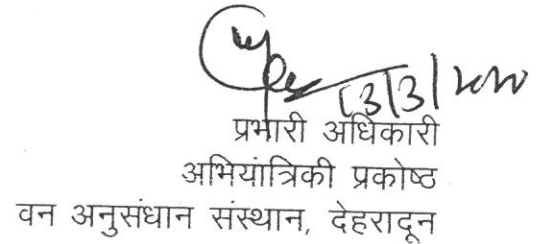 13/3/2020
प्रभारी अधिकारी
अभियांत्रिकी प्रकोष्ठ
वन अनुसंधान संस्थान, देहरादून